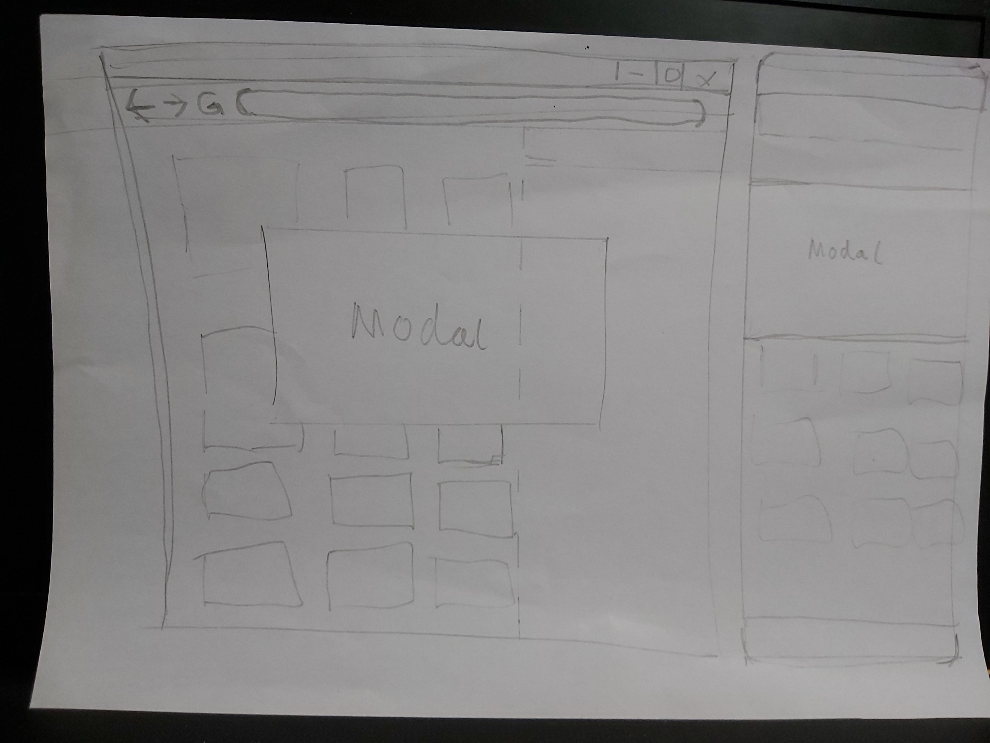 Modal
Modal